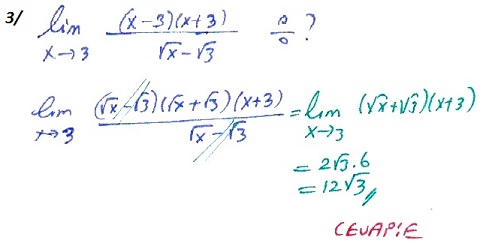 3/ lim x→3 (x-3)(x+3) / √x-√3 0/0 ?
lim x→3 (√x-√3)(√x+√3)(x+3) / √x-√3 = lim x→3 (√x+√3)(x+3)
= 2√3.6
= 12√3//
CEVAP:E